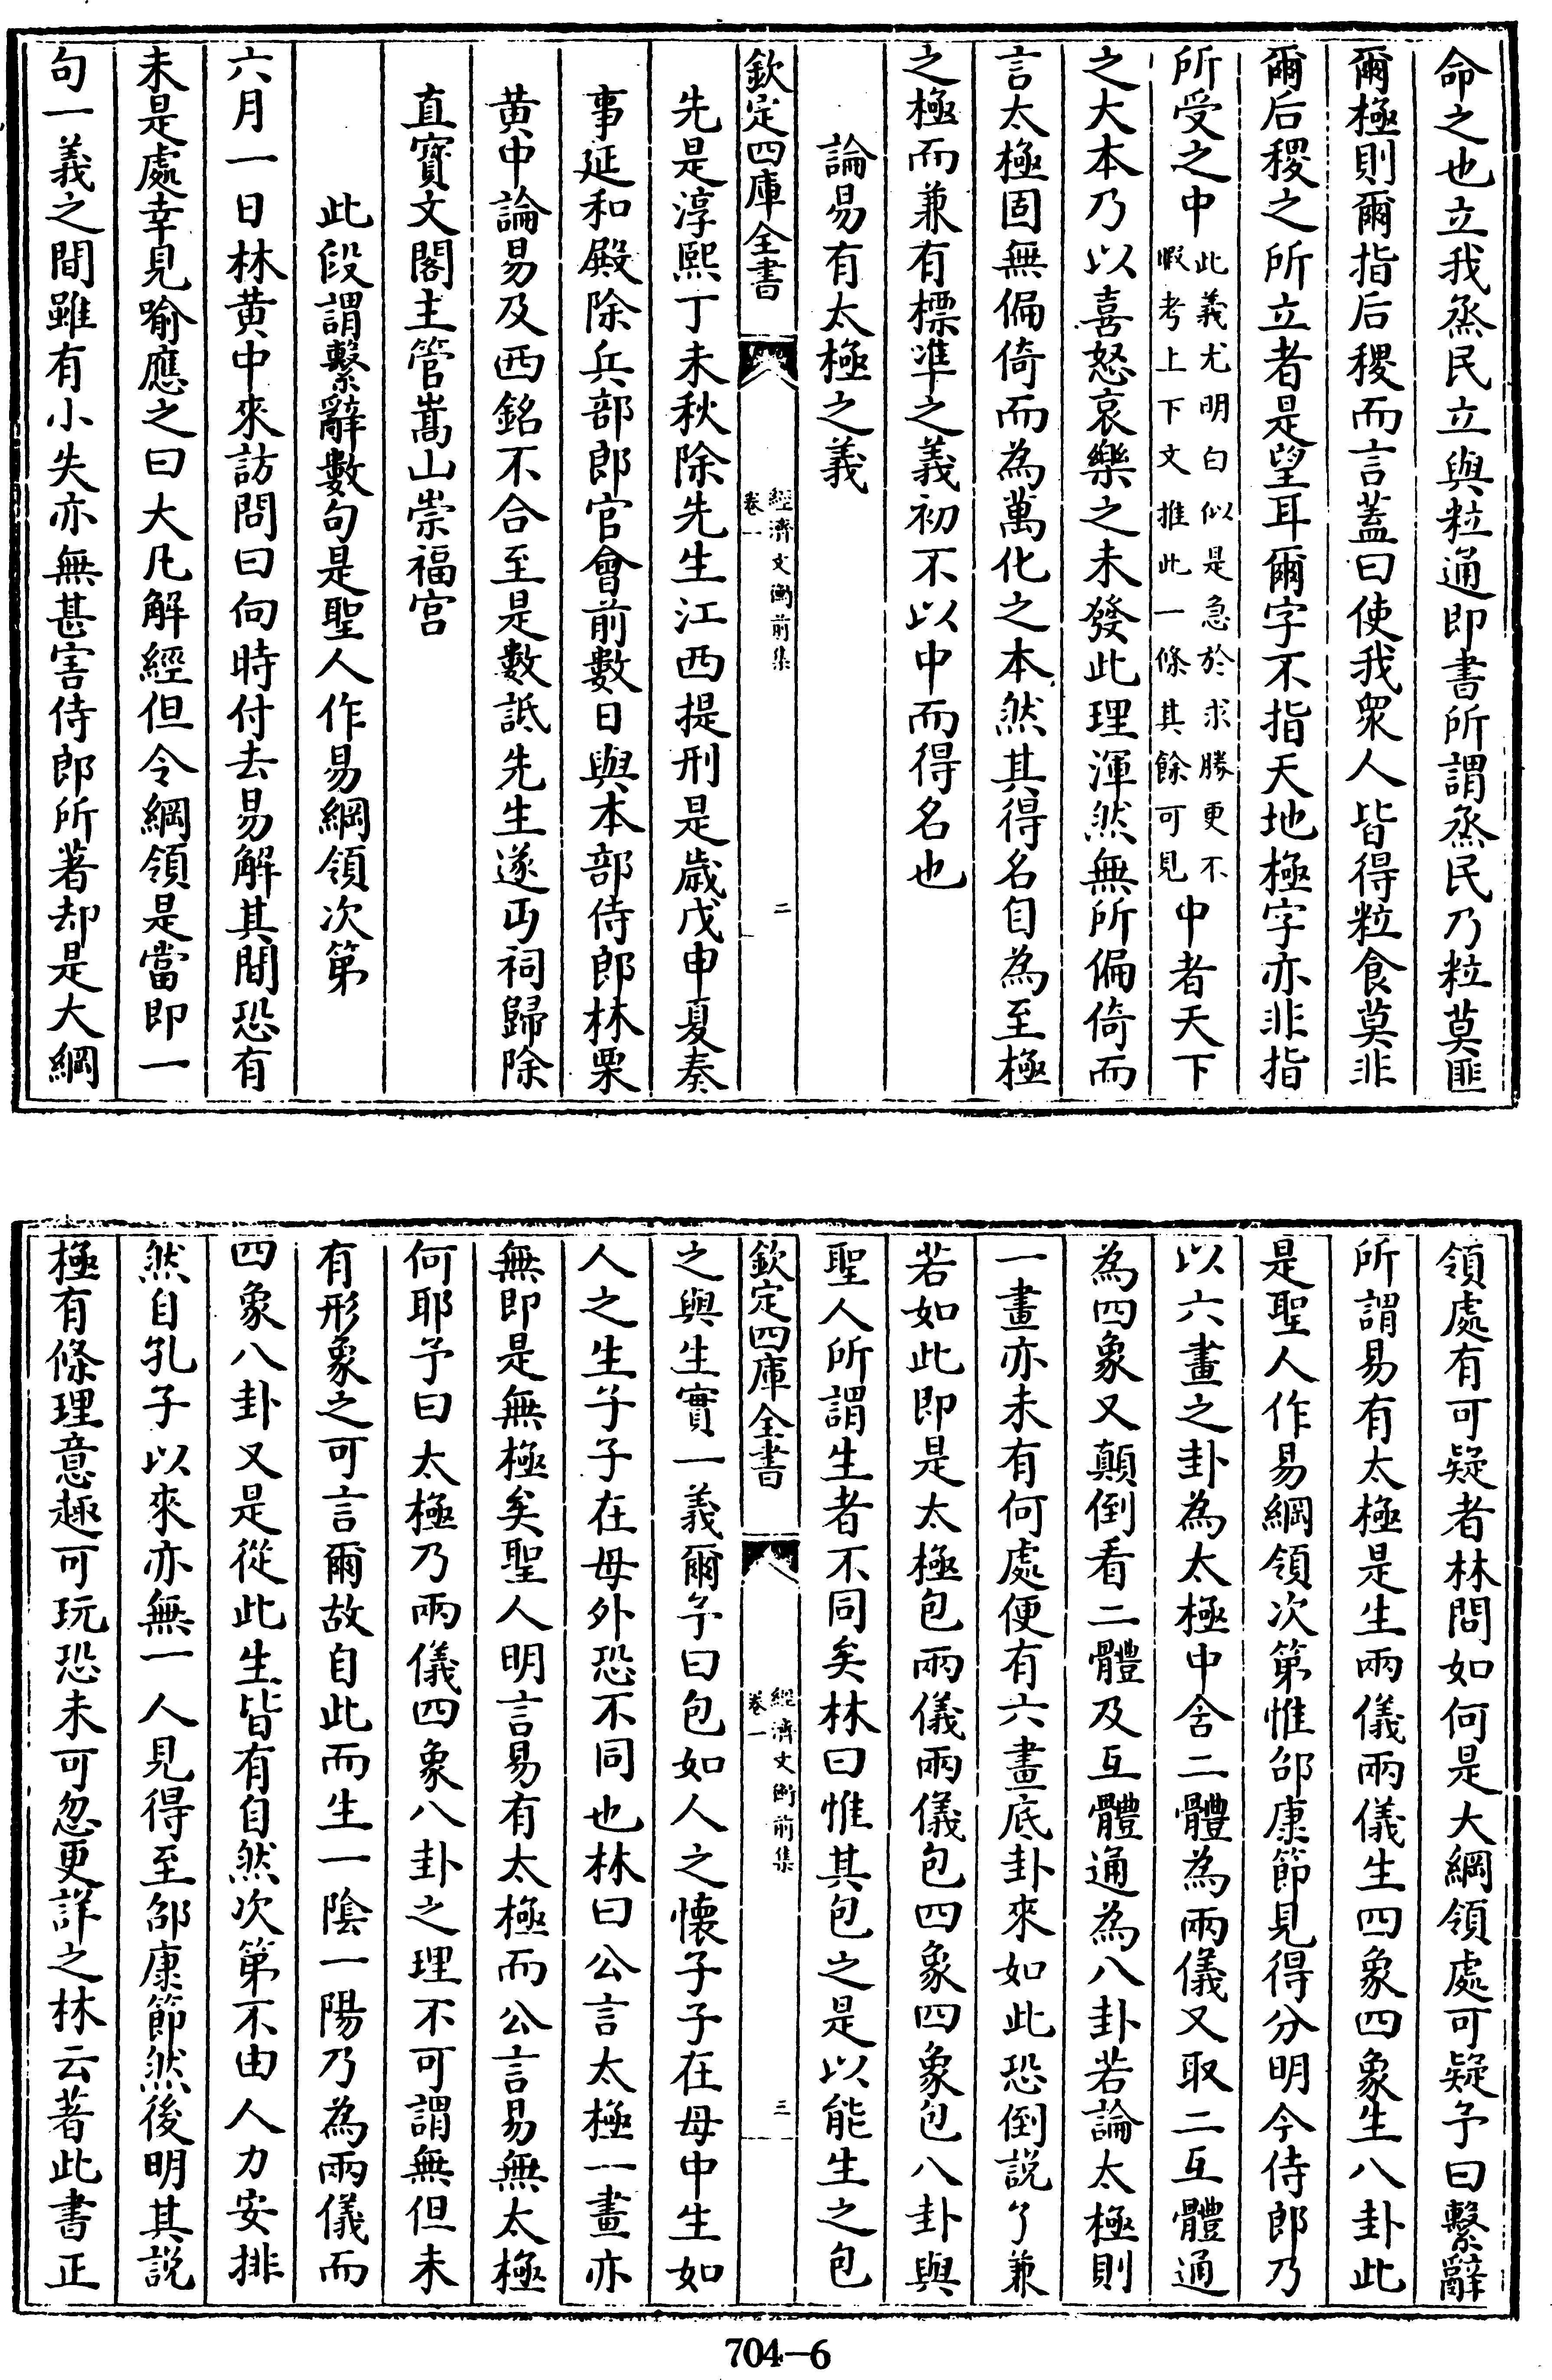 命之也立我烝民立與粒通即書所謂烝民乃粒莫匪
爾極則爾指后稷而言蓋曰使我衆人皆得粒食莫非
爾后稷之所立者是望耳爾字不指天地極字亦非指
所受之中此義尤明白似是急於求勝更不暇考上下文推此一條其餘可見中者天下
之大本乃以喜怒哀樂之未發此理渾然無所偏倚而
言太極固無偏倚而為萬化之本然其得名自為至極
之極而兼有標準之義初不以中而得名也
論易有太極之義
欽定四庫全書
經濟文衡前集
卷一
二
先是淳熙丁未秋除先生江西提刑是歲戊申夏奏
事延和殿除兵部郎官會前數日與本部侍郎林栗
黄中論易及西銘不合至是數詆先生遂丏祠歸除
直寳文閣主管嵩山崇福宫
此段謂繫辭數句是聖人作易綱領次第
六月一日林黄中來訪問曰向時付去易解其間恐有
未是處幸見喻應之曰大凡解經但令綱領是當即一
句一義之間雖有小失亦無甚害侍郎所著却是大綱
領處有可疑者林問如何是大綱領處可疑予曰繫辭
所謂易有太極是生兩儀兩儀生四象四象生八卦此
是聖人作易綱領次第惟邵康節見得分明今侍郎乃
以六畫之卦為太極中含二體為兩儀又取二互體通
為四象又顛倒看二體及互體通為八卦若論太極則
一畫亦未有何處便有六畫底卦來如此恐倒説了兼
若如此即是太極包兩儀兩儀包四象四象包八卦與
聖人所謂生者不同矣林曰惟其包之是以能生之包
欽定四庫全書
經濟文衡前集
卷一
三
之與生實一義爾予曰包如人之懷子子在母中生如
人之生子子在母外恐不同也林曰公言太極一畫亦
無即是無極矣聖人明言易有太極而公言易無太極
何耶予曰太極乃兩儀四象八卦之理不可謂無但未
有形象之可言爾故自此而生一陰一陽乃為兩儀而
四象八卦又是從此生皆有自然次第不由人力安排
然自孔子以來亦無一人見得至邵康節然後明其説
極有條理意趣可玩恐未可忽更詳之林云著此書正
704-6